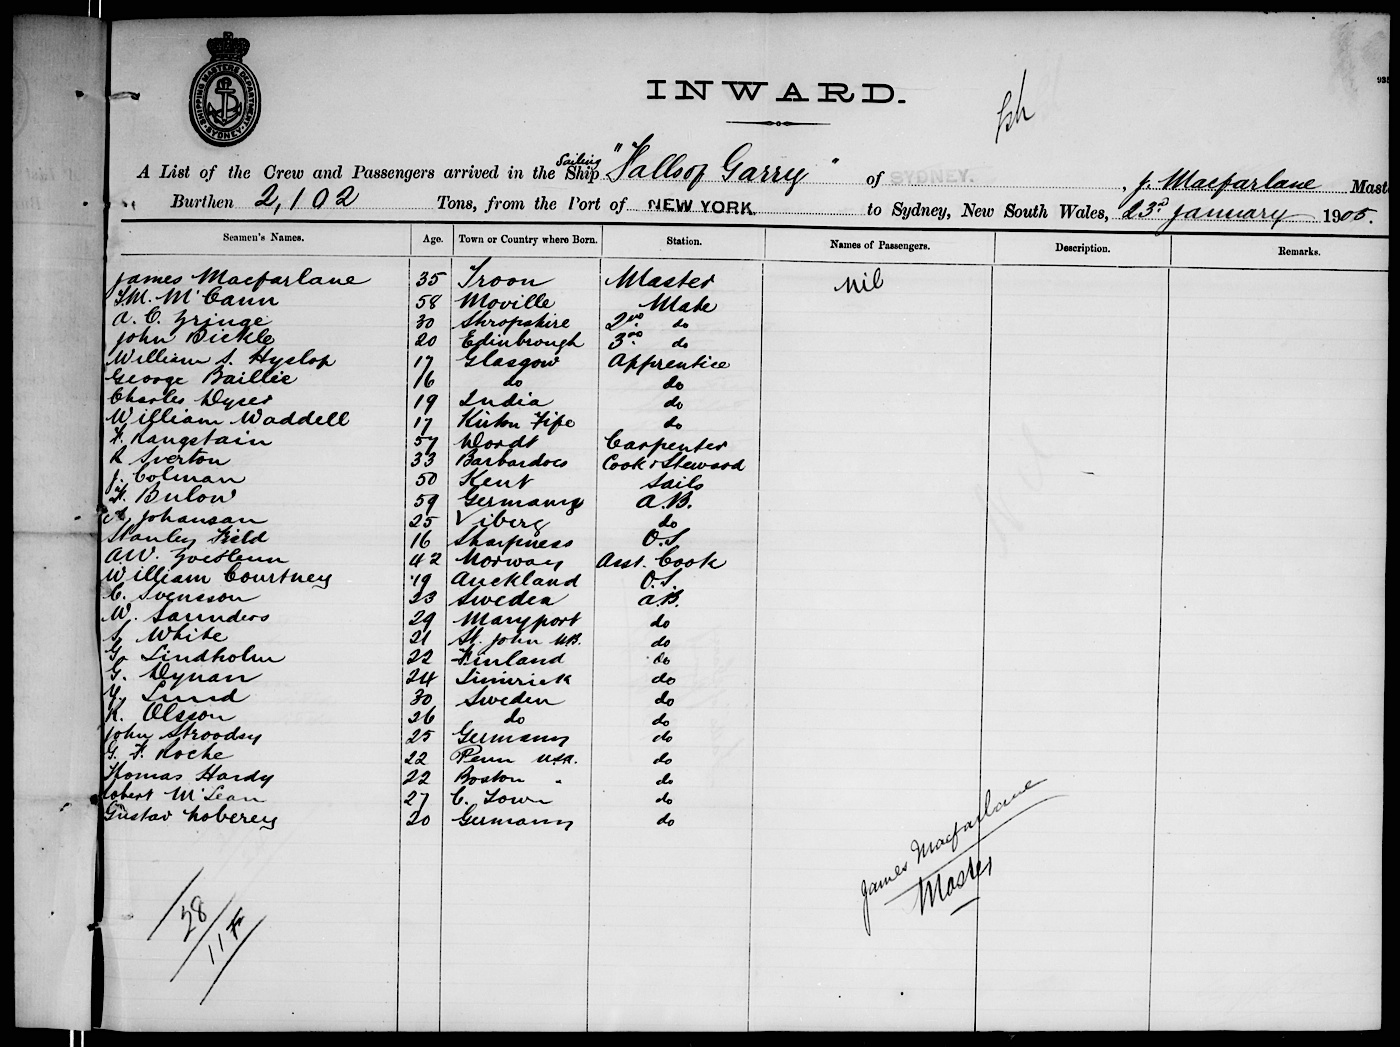 SHIPPING MASTERS DEPARTMENT SYDNEY
INWARD.
A List of the Crew and Passengers arrived in the Sailing Ship "Falls of Garry" of SYDNEY. , J. Macfarlane Mast
Burthen 2,102 Tons, from the Port of NEW YORK. to Sydney, New South Wales, 23rd January 1905.
Seamen's Names. Age. Town or Country where Born. Station. Names of Passengers. Description. Remarks.
James Macfarlane 35 Troon Master Nil
McCann 58 Moville Mate
A. C. 30 Shropshire 2nd do
John Bickle 20 Edinbrough 3rd do
William S. Hyslop 17 Glasgow Apprentice
George Baillie 16 do do
Charles Dyser 19 India do
William Waddell 17 Kirton Fife do
F. Rangstain 57 Carpenter
R Overton 33 Barbardoes Cook & Steward
J. Colman 50 Kent Sails
F. Bulow 59 Germany A.B.
A. Johansan 25 Viberg do
Stanley Field 16 Sharpness O.S
A.W. 42 Norway Asst. Cook
William Courtney 19 Auckland O.S.
C. Svensson 23 Sweden A.B.
W. Saunders 29 Maryport do
S. White 21 St. John N.B. do
G. Lindholm 22 Finland do
G. Dynan 24 Limrick do
Y. Lund 30 Sweden do
K. Olsson 26 do do
John Stroodsy 25 Germany do
G. F. Roche 22 Penn USA. do
Thomas Hardy 22 Boston " do
Robert McLean 27 C. Town do
Gustav 20 Germany do
James Macfarlane
Master
28
11 F